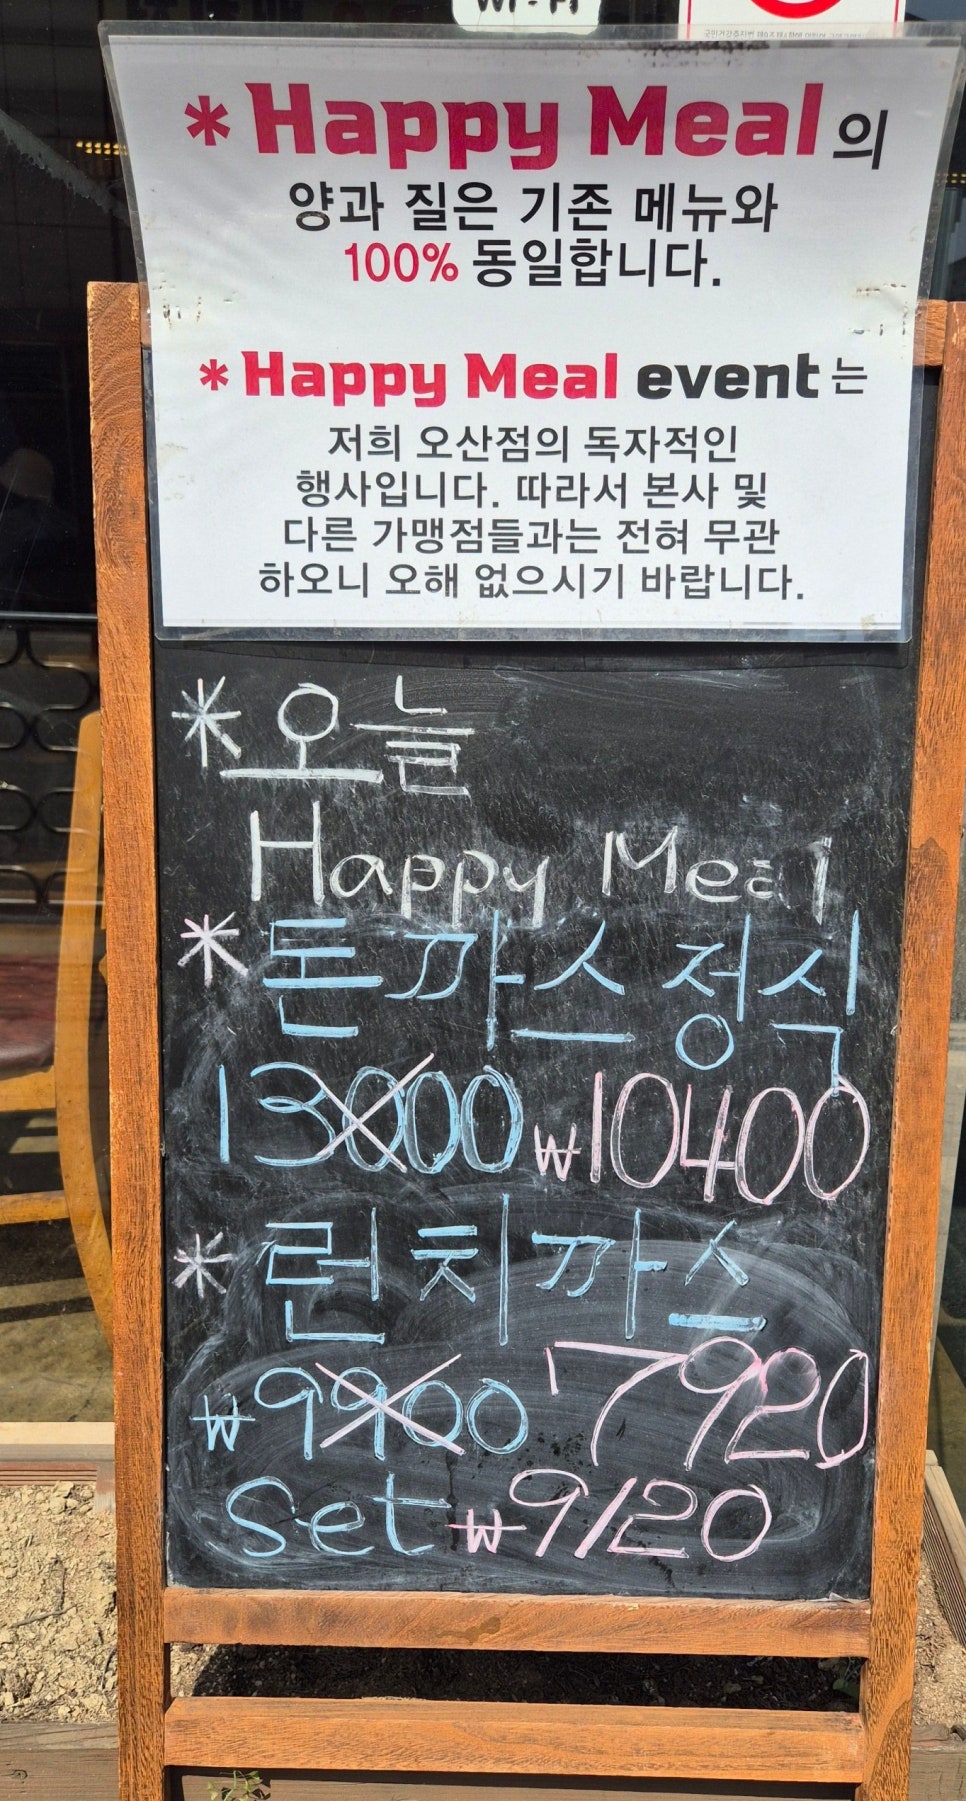 WI-FI
*Happy Meal의
양과 질은 기존 메뉴와
100% 동일합니다.
*Happy Meal event는
저희 오산점의 독자적인
행사입니다. 따라서 본사 및
다른 가맹점들과는 전혀 무관
하오니 오해 없으시기 바랍니다.
*오늘
Happy Meal
*돈까스정식
13000 ₩10400
*런치까스
₩9900 7920
Set ₩9120